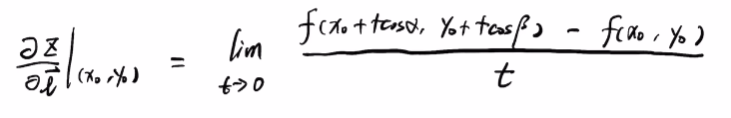 $\left.\frac{\partial z}{\partial \vec{l}}\right|_{(x_0, y_0)} = \lim_{t \to 0} \frac{f(x_0 + t\cos\alpha, y_0 + t\cos\beta) - f(x_0, y_0)}{t}$